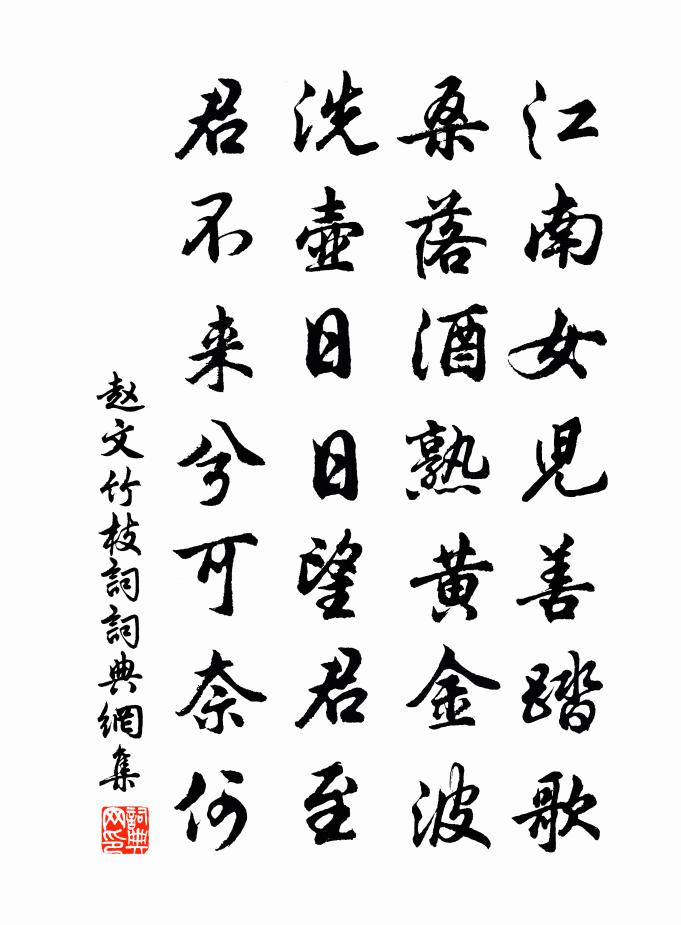 江南女児善踏歌
桑落酒熟黄金波
洗壺日日望君至
君不来兮可奈何
赵文竹枝詞詞典網集
詞典网印